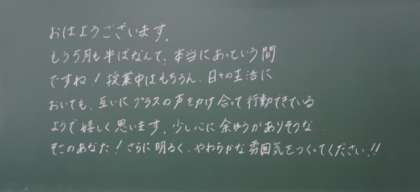 おはようございます。
もう5月も半ばなんて、本当にあっという間
ですね！授業中はもちろん、日々の生活に
おいても、互いにプラスの声をかけ合って行動できている
ようで嬉しく思います。少し心に余ゆうがありそうな
そこのあなた！さらに明るく、やわらかな雰囲気をつくってください!!